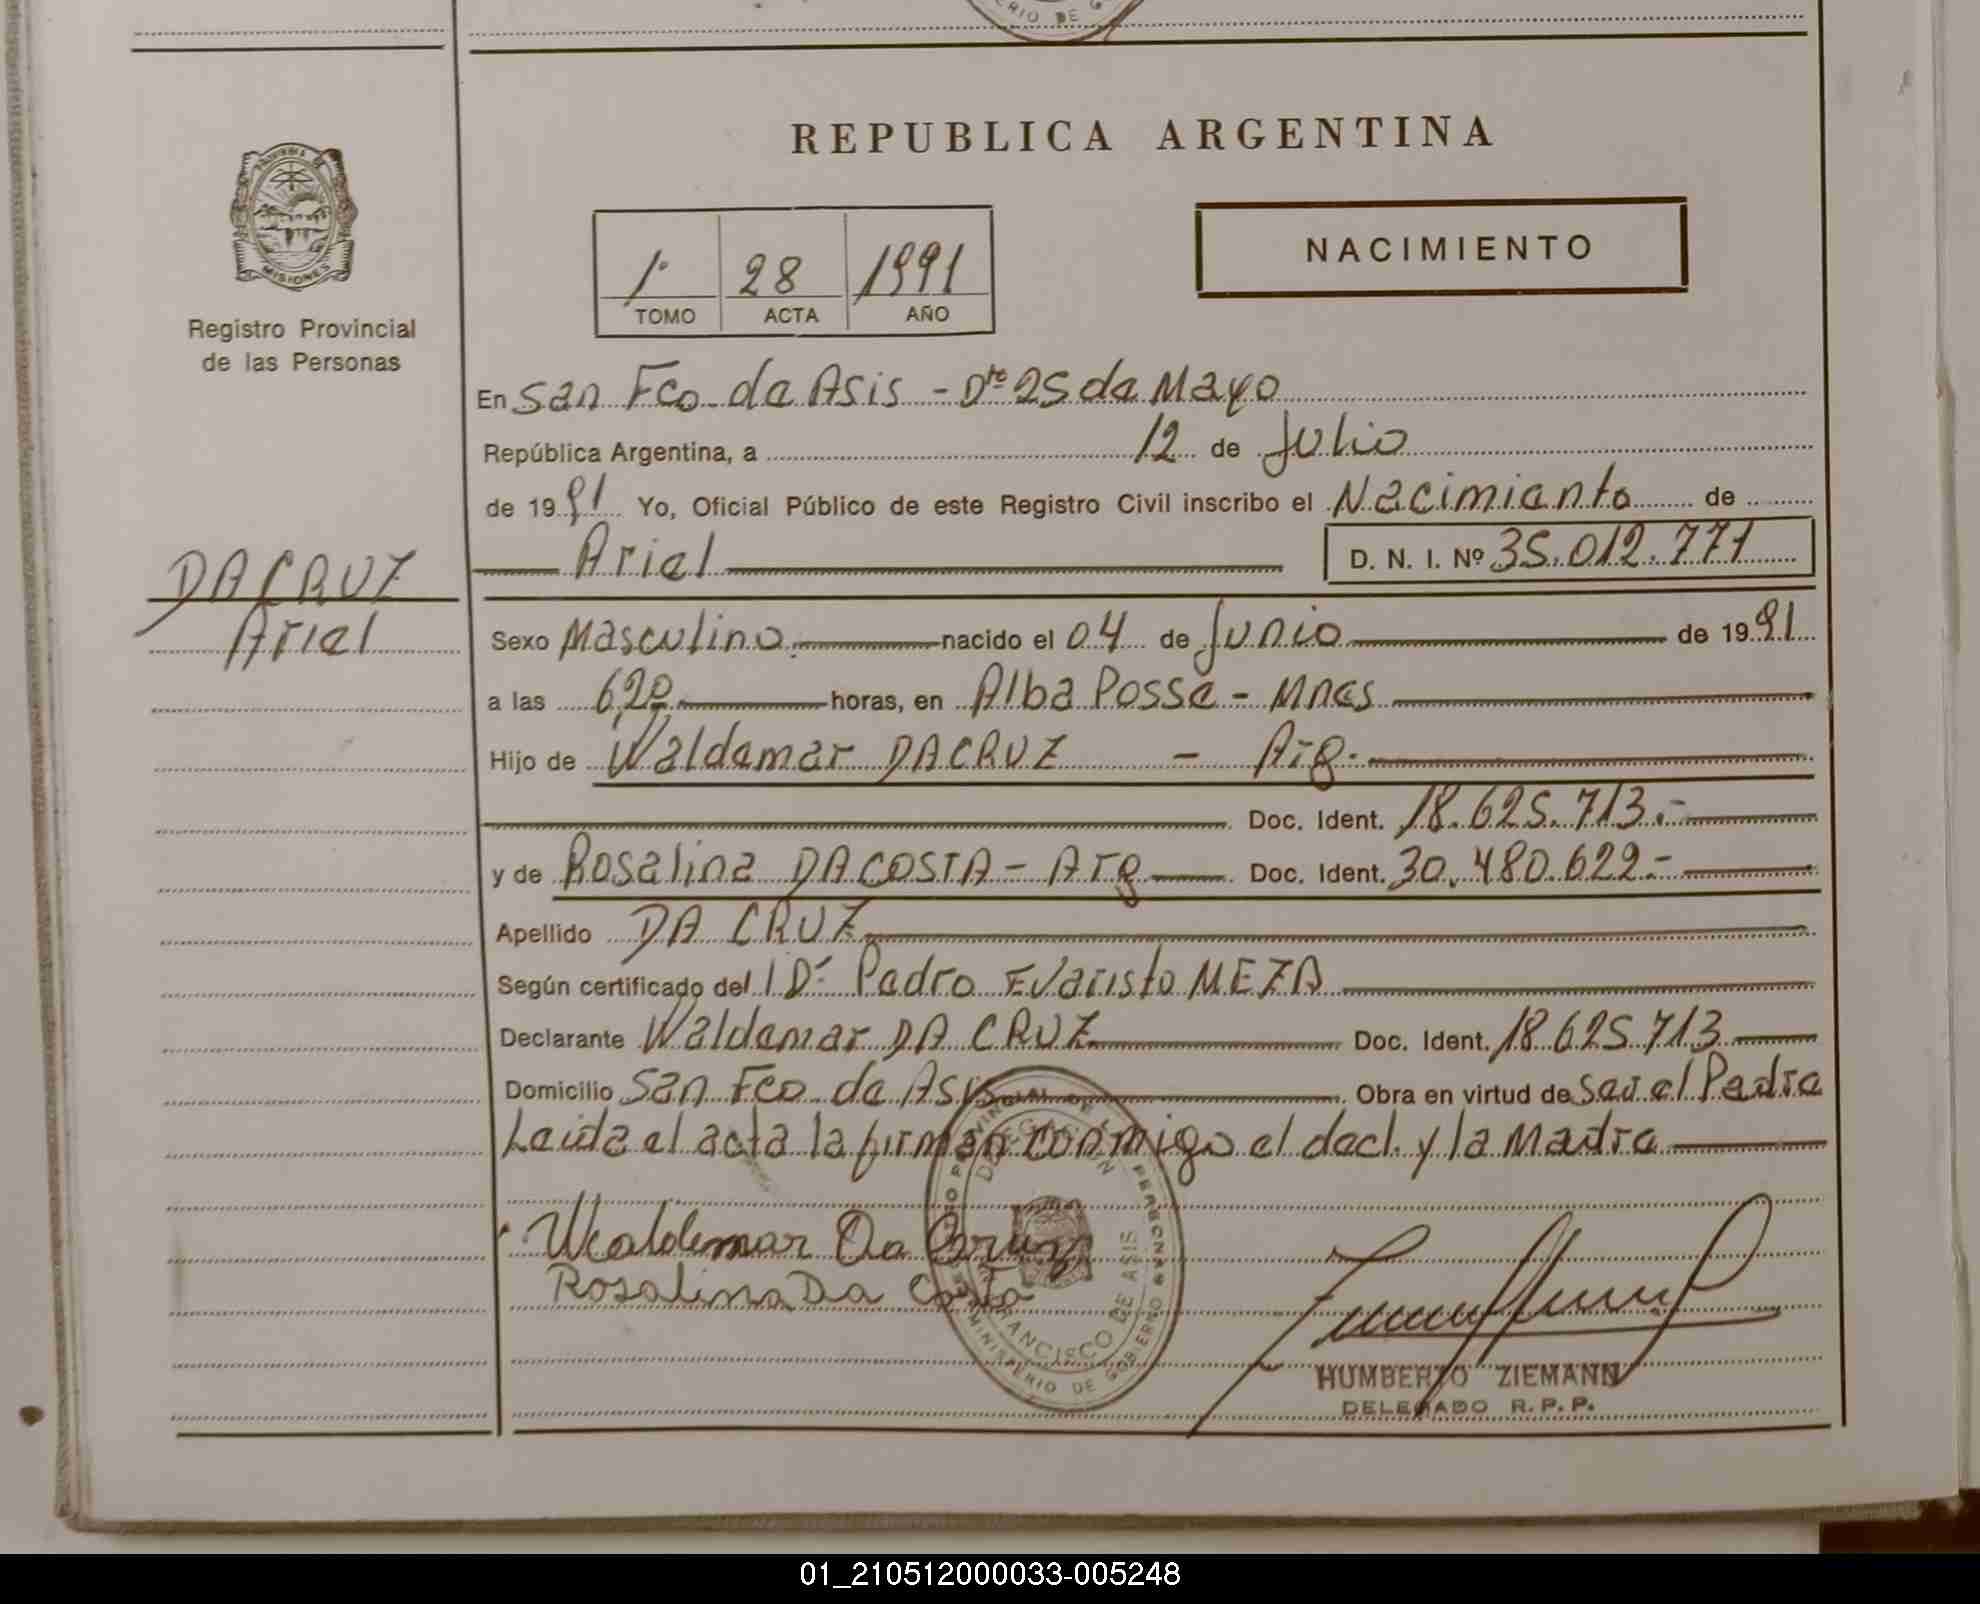 ERIO DE G
REPUBLICA ARGENTINA
PROVINCIA DE
MISIONES
Registro Provincial
de las Personas
NACIMIENTO
1º 28 1991
TOMO ACTA AÑO
En San Fco. de Asis - Dto 25 de Mayo
República Argentina, a 12 de Julio
de 1991 Yo, Oficial Público de este Registro Civil inscribo el Nacimiento de
Ariel D. N. I. Nº 35.012.771
DA CRUZ
Ariel
Sexo Masculino nacido el 04 de Junio de 1991
a las 6,20 horas, en Alba Posse - Mnes
Hijo de Waldemar DA CRUZ - Arg.
Doc. Ident. 18.625.713.-
y de Rosalina DA COSTA - Arg Doc. Ident. 30.480.622.-
Apellido DA CRUZ
Según certificado del Dr. Pedro Evaristo MEZA
Declarante Waldemar DA CRUZ Doc. Ident. 18.625.713
Domicilio San Fco. de Asis Obra en virtud de ser el Padre
Leida el acta la firman conmigo el decl. y la Madre
Waldemar Da Cruz
Rosalina Da Costa
DELEGACION
FRANCISCO DE ASIS
MINISTERIO DE GOBIERNO
HUMBERTO ZIEMANN
DELEGADO R.P.P.
01_210512000033-005248